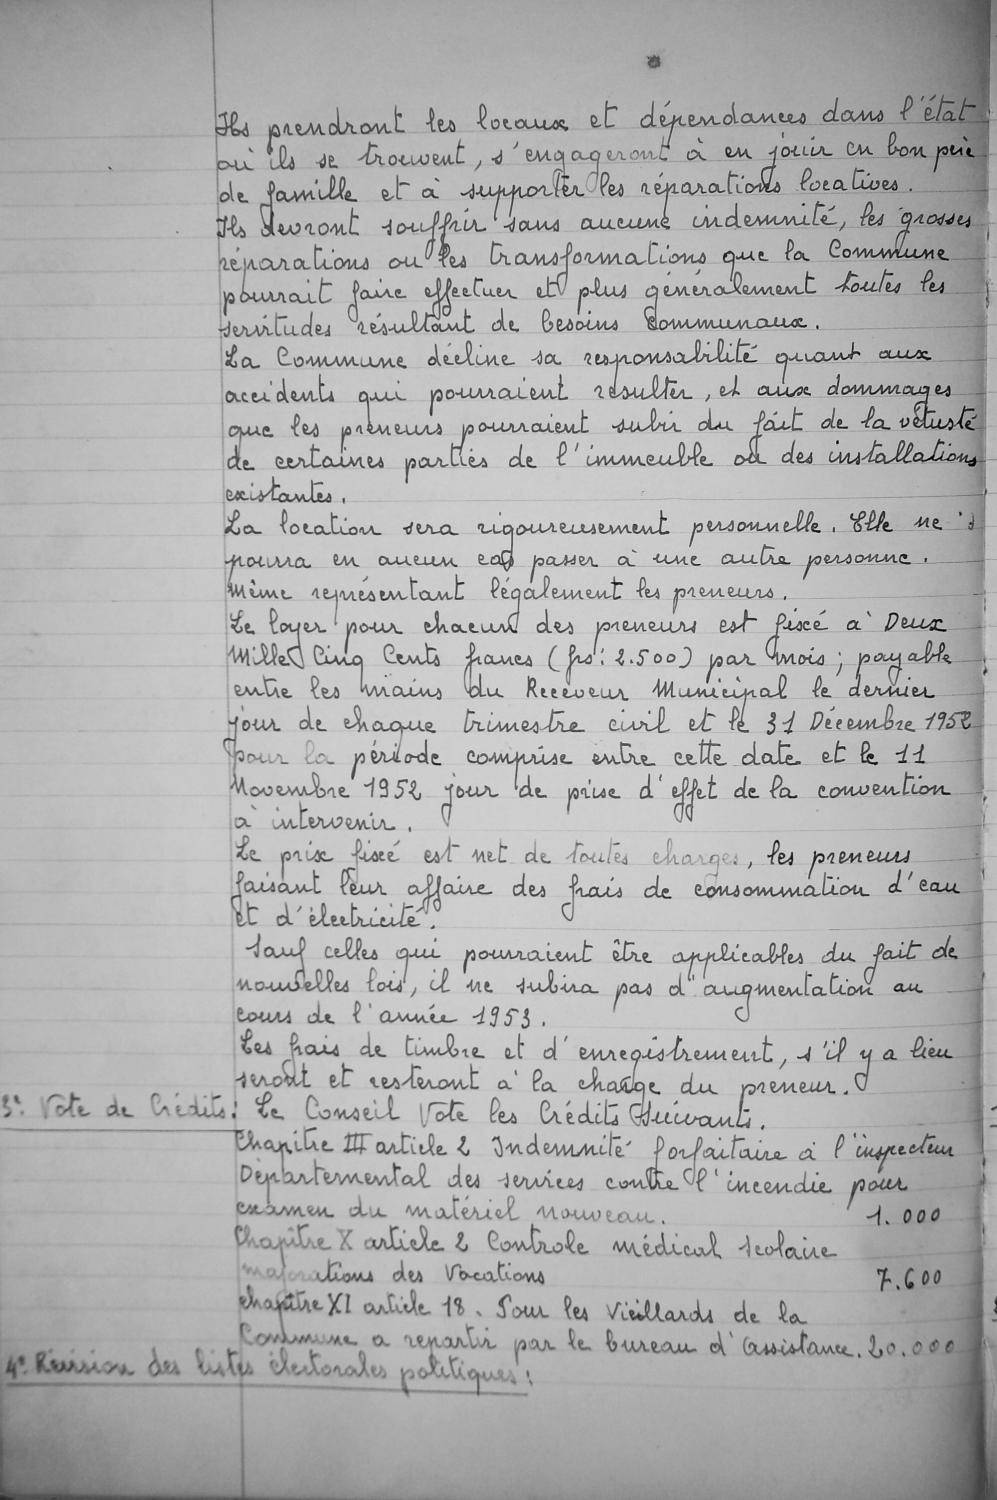 Ils prendront les locaux et dépendances dans l'état
où ils se trouvent, s'engageront à en jouir en bon père
de famille et à supporter les réparations locatives.
Ils devront souffrir sans aucune indemnité, les grosses
réparations ou les transformations que la Commune
pourrait faire effectuer et plus généralement toutes les
servitudes résultant de besoins communaux.
La Commune décline sa responsabilité quant aux
accidents qui pourraient resulter, et aux dommages
que les preneurs pourraient subir du fait de la vétusté
de certaines parties de l'immeuble ou des installations
existantes.
La location sera rigoureusement personnelle. Elle ne
pourra en aucun cas passer à une autre personne.
Même représentant légalement les preneurs.
Le loyer pour chacun des preneurs est fixé à Deux
Mille Cinq Cents francs (frs: 2.500) par mois; payable
entre les mains du Receveur Municipal le dernier
jour de chaque trimestre civil et le 31 Décembre 1952
pour la période comprise entre cette date et le 11
Novembre 1952 jour de prise d'effet de la convention
à intervenir.
Le prix fixé est net de toutes charges, les preneurs
faisant leur affaire des frais de consommation d'eau
et d'électricité.
Sauf celles qui pourraient être applicables du fait de
nouvelles lois, il ne subira pas d'augmentation au
cours de l'année 1953.
Les frais de timbre et d'enregistrement, s'il y a lieu
seront et resteront à la charge du preneur.
3°. Vote de Crédits: Le Conseil Vote les Crédits Suivants.
Chapitre III article 2 Indemnité forfaitaire à l'inspecteur
Départemental des services contre l'incendie pour
examen du matériel nouveau. 1.000
Chapitre X article 2 Controle médical scolaire
majorations des Vacations 7.600
chapitre XI article 18. Pour les Vieillards de la
Commune a repartir par le bureau d'assistance. 20.000
4°. Révision des listes électorales politiques: